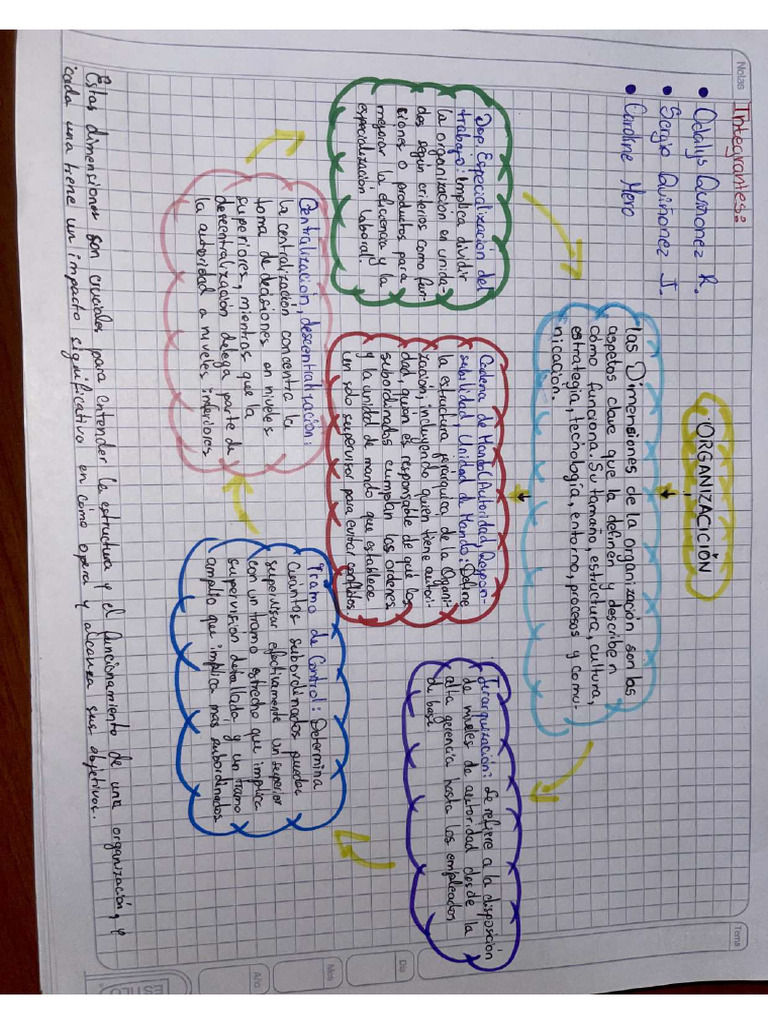 Notas
Tema
Integrantes:
• Odalys Quiñonez R.
• Sergio Quiñonez J.
• Caroline Mero
ORGANIZACICIÓN
las Dimensiones de la organización son los
aspetos clave que la definen y describen
cómo funciona. Su tamaño, estructura, cultura,
estrategia, tecnología, entorno, procesos y comu-
nicación.
Dep. Especialización del
trabajo: Implica dividir
la organización en unida-
des según criterios como fun-
ciones o productos para
mejorar la eficiencia y la
especialización laboral.
Cadena de Mando (Autoridad, Respon-
sabilidad, Unidad de Mando: Define
la estructura jerárquica de la Organi-
zación, incluyendo quién tiene autori-
dad, quien es responsable de que los
subordinados cumplan las ordenes
y la unidad de mando que establece
un solo supervisor para evitar conflictos
Jerarquización: Se refiere a la disposición
de niveles de autoridad desde la
alta gerencia hasta los empleados
de base
Centralización, descentralización:
la centralización concentra la
toma de decisiones en niveles
superiores, mientras que la
descentralización delega parte de
la autoridad a niveles inferiores
Tramo de Control: Determina
cuántos subordinados puedes
supervisar efectivamente un superior
con un tramo estrecho que implica
supervisión detallada y un tramo
amplio que implica mas subordinados
Estas dimensiones son cruciales para entender la estructura y el funcionamiento de una organización, y
cada una tiene un impacto significativo en cómo opera y alcanza sus objetivos.
Día
Mes
Año
ESTILO